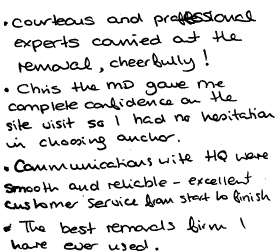 • courteous and professional
experts carried out the
removal, cheerfully!
• Chris the MD gave me
complete confidence on the
site visit so I had no hesitation
in choosing anchor.
• Communications with HQ were
smooth and reliable - excellent
customer service from start to finish
• The best removals firm I
have ever used.